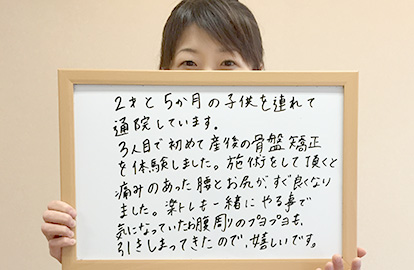 2才と5か月の子供を連れて
通院しています。
3人目で初めて産後の骨盤矯正
を体験しました。施術をして頂くと
痛みのあった腰とお尻が、すぐ良くなり
ました。楽トレも一緒にやる事で
気になっていたお腹周りのプヨプヨも、
引きしまってきたので、嬉しいです。